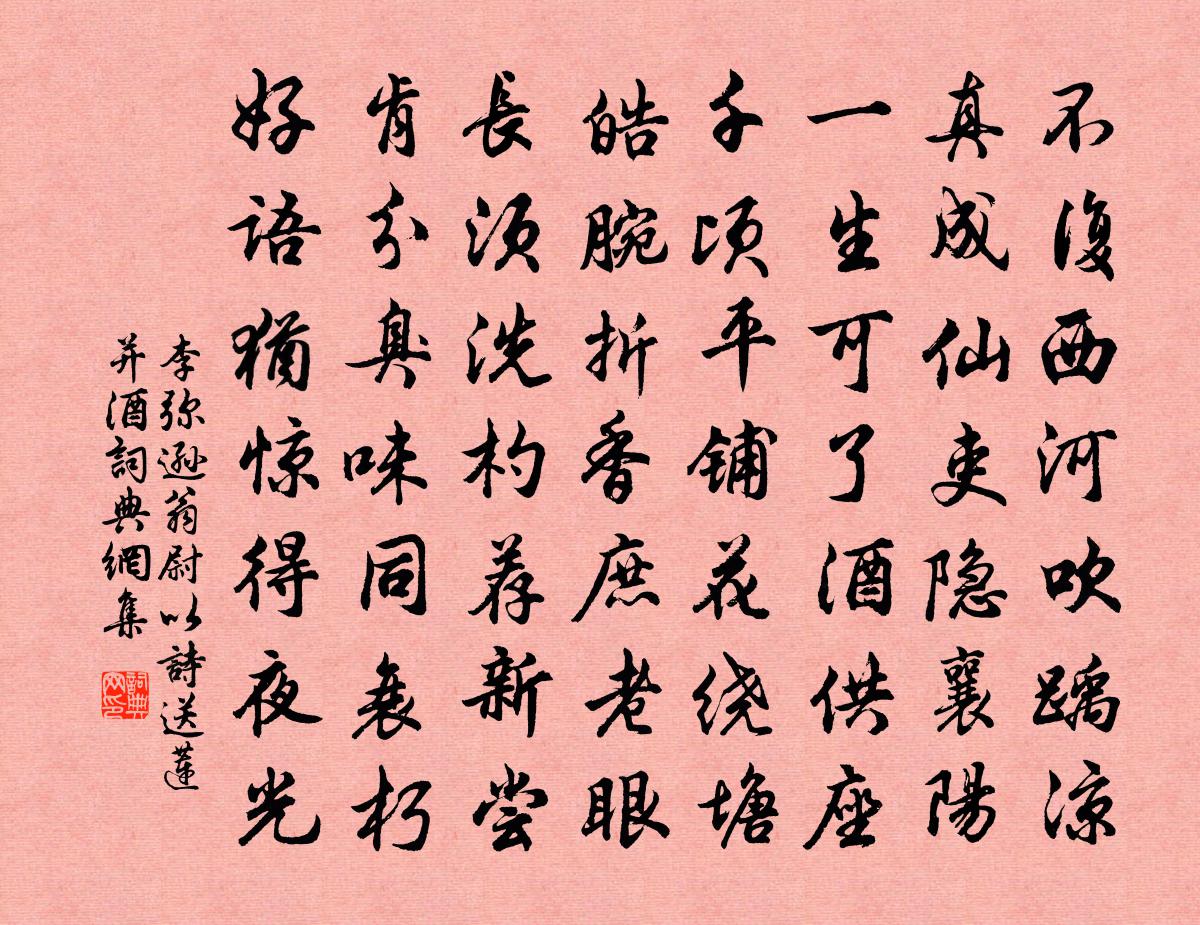 不復西河吹踽涼
真成仙吏隐襄陽
一生可了酒供座
千顷平铺花绕塘
皓腕折香庶老眼
長须洗杓荐新尝
肯分臭味同衰朽
好語猶惊得夜光
李弥遜翁尉以詩送蓮
并酒詞典網集
詞典
网